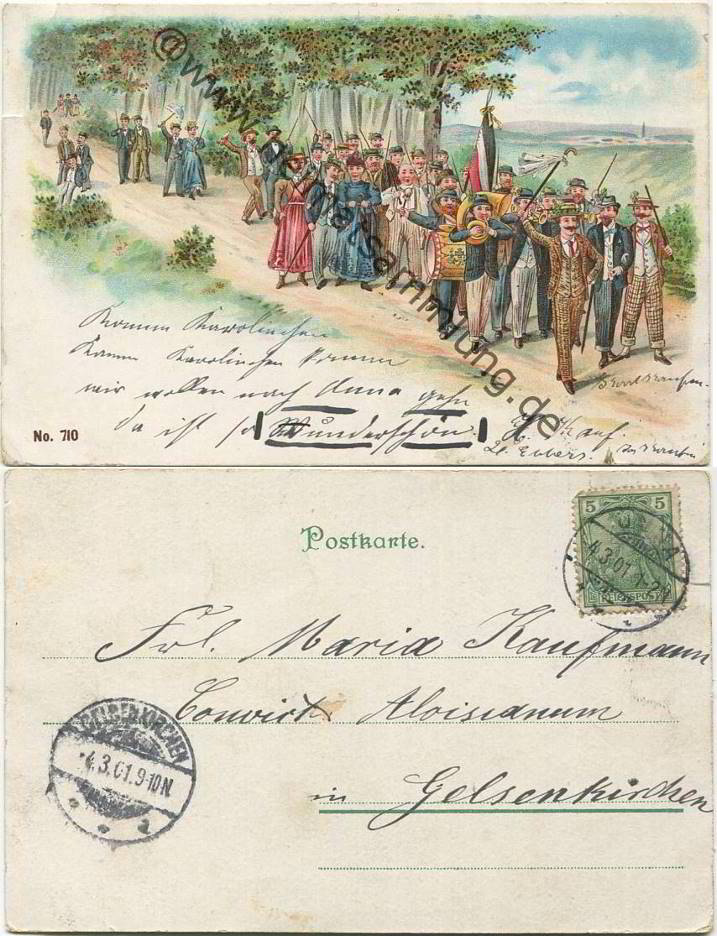 ©www.heimatsammlung.de
Komm Karolinchen
Komm Karolinchen komm
wir wollen nach Unna gehn
da ist so Wunderschön
auf.
L. Ebbers.
No. 710
Postkarte.
5 5
REICHSPOST
UNNA
4.3.01. 1-2N
Frl. Maria Kaufmann
Convict Aloisianum
in Gelsenkirchen
GELSENKIRCHEN
4.3.01. 9-10N.